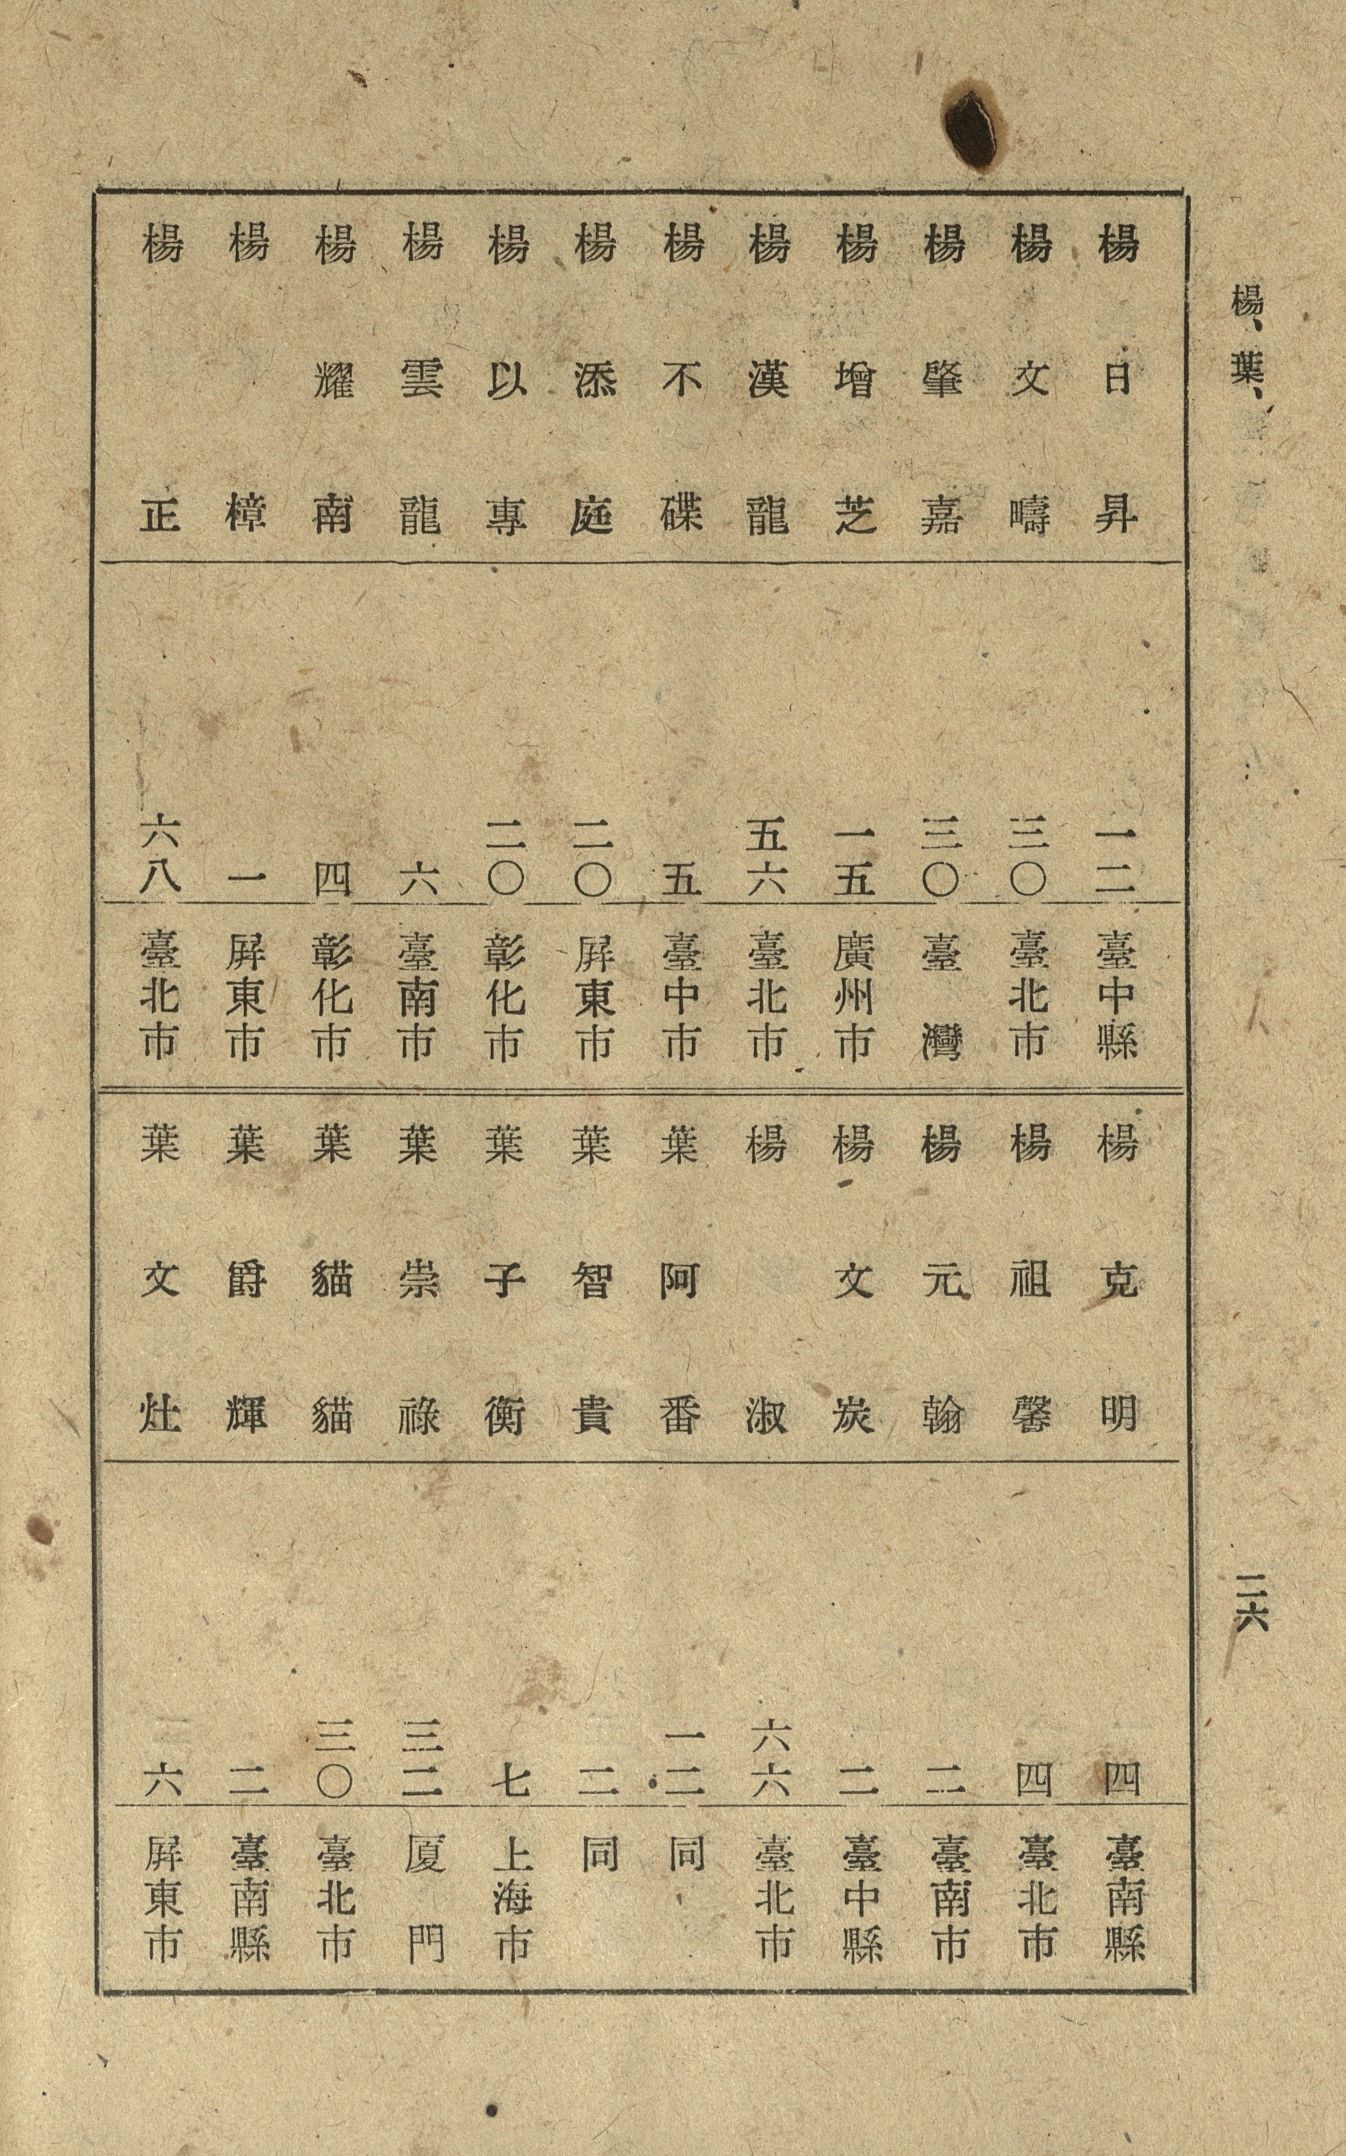 楊、葉、
二六
楊日昇 一二 臺中縣
楊文疇 三〇 臺北市
楊肇嘉 三〇 臺灣
楊增芝 一五 廣州市
楊漢龍 五六 臺北市
楊不碟 五 臺中市
楊添庭 二〇 屏東市
楊以專 二〇 彰化市
楊雲龍 六 臺南市
楊耀南 四 彰化市
楊樟 一 屏東市
楊正 六八 臺北市
楊克明 四 臺南縣
楊祖馨 四 臺北市
楊元翰 二 臺南市
楊文炭 二 臺中縣
楊淑 六六 臺北市
葉阿番 一二 同
葉智貴 二 同
葉子衡 七 上海市
葉崇祿 三二 厦門
葉貓貓 三〇 臺北市
葉爵輝 二 臺南縣
葉文灶 二六 屏東市